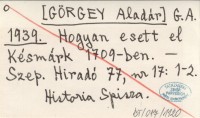 [GÖRGEY Aladár] G.A.
1939. Hogyan esett el
Késmárk 1709-ben. —
Szep. Hiradó 77, nr. 17: 1-2.
Historia Spissa.